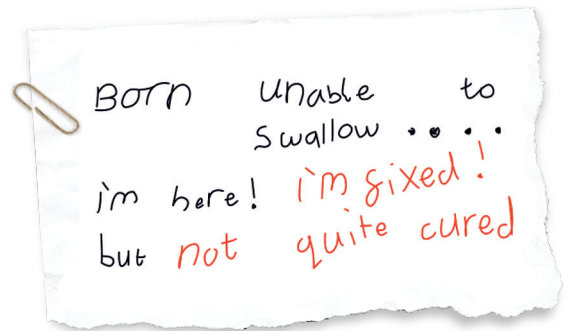 Born Unable to
Swallow ....
i'm here! i'm fixed!
but not quite cured